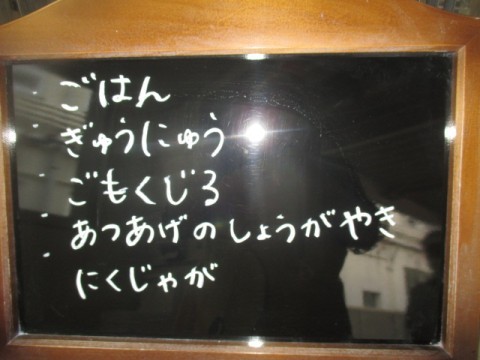 ごはん
ぎゅうにゅう
ごもくじる
あつあげのしょうがやき
にくじゃが